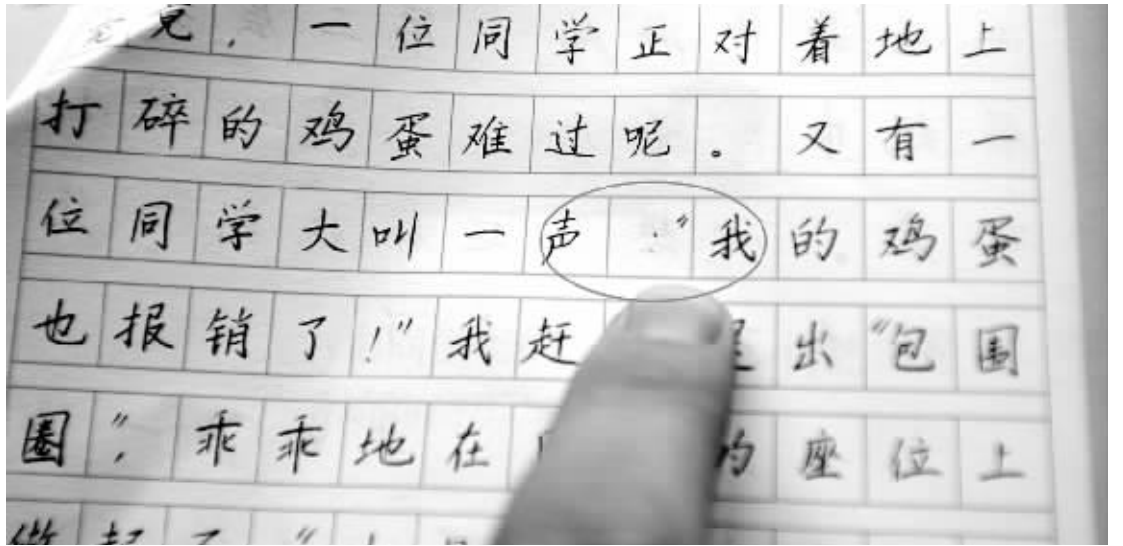 竟，一位同学正对着地上
打碎的鸡蛋难过呢。又有一
位同学大叫一声：“我的鸡蛋
也报销了！”我赶出“包围
圈”，乖乖地在的座位上
做起了“